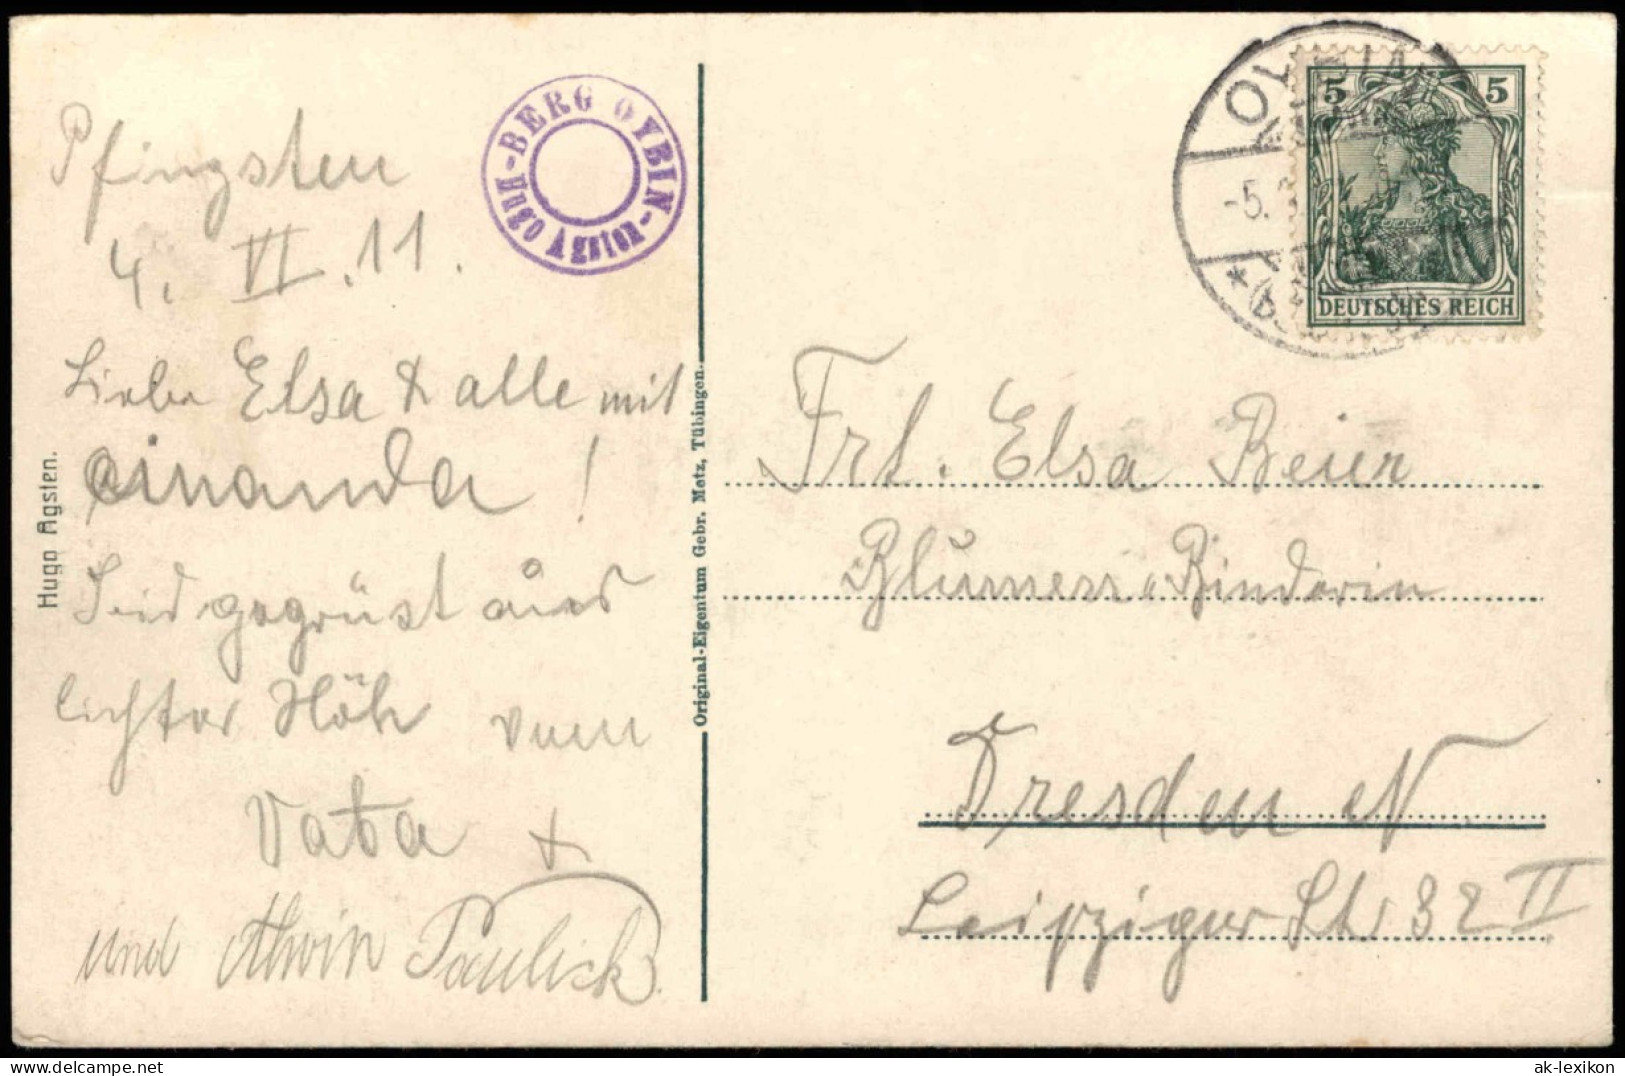 Pfingsten
4. VI. 11.
Liebe Elsa & alle mit
einanda!
Seid gegrüst aus
lichter Höh vom
Vata +
und Alwin Paulick.
BERG OYBIN-
Hugo Agsten.
Original-Eigentum Gebr. Metz, Tübingen.
OYBIN
-5.
5 5
DEUTSCHES REICH
Frl. Elsa Beier
Blumen-Binderin
Dresden N
Leipziger Str 82 II
© ak-lexikon
ak-lexikon